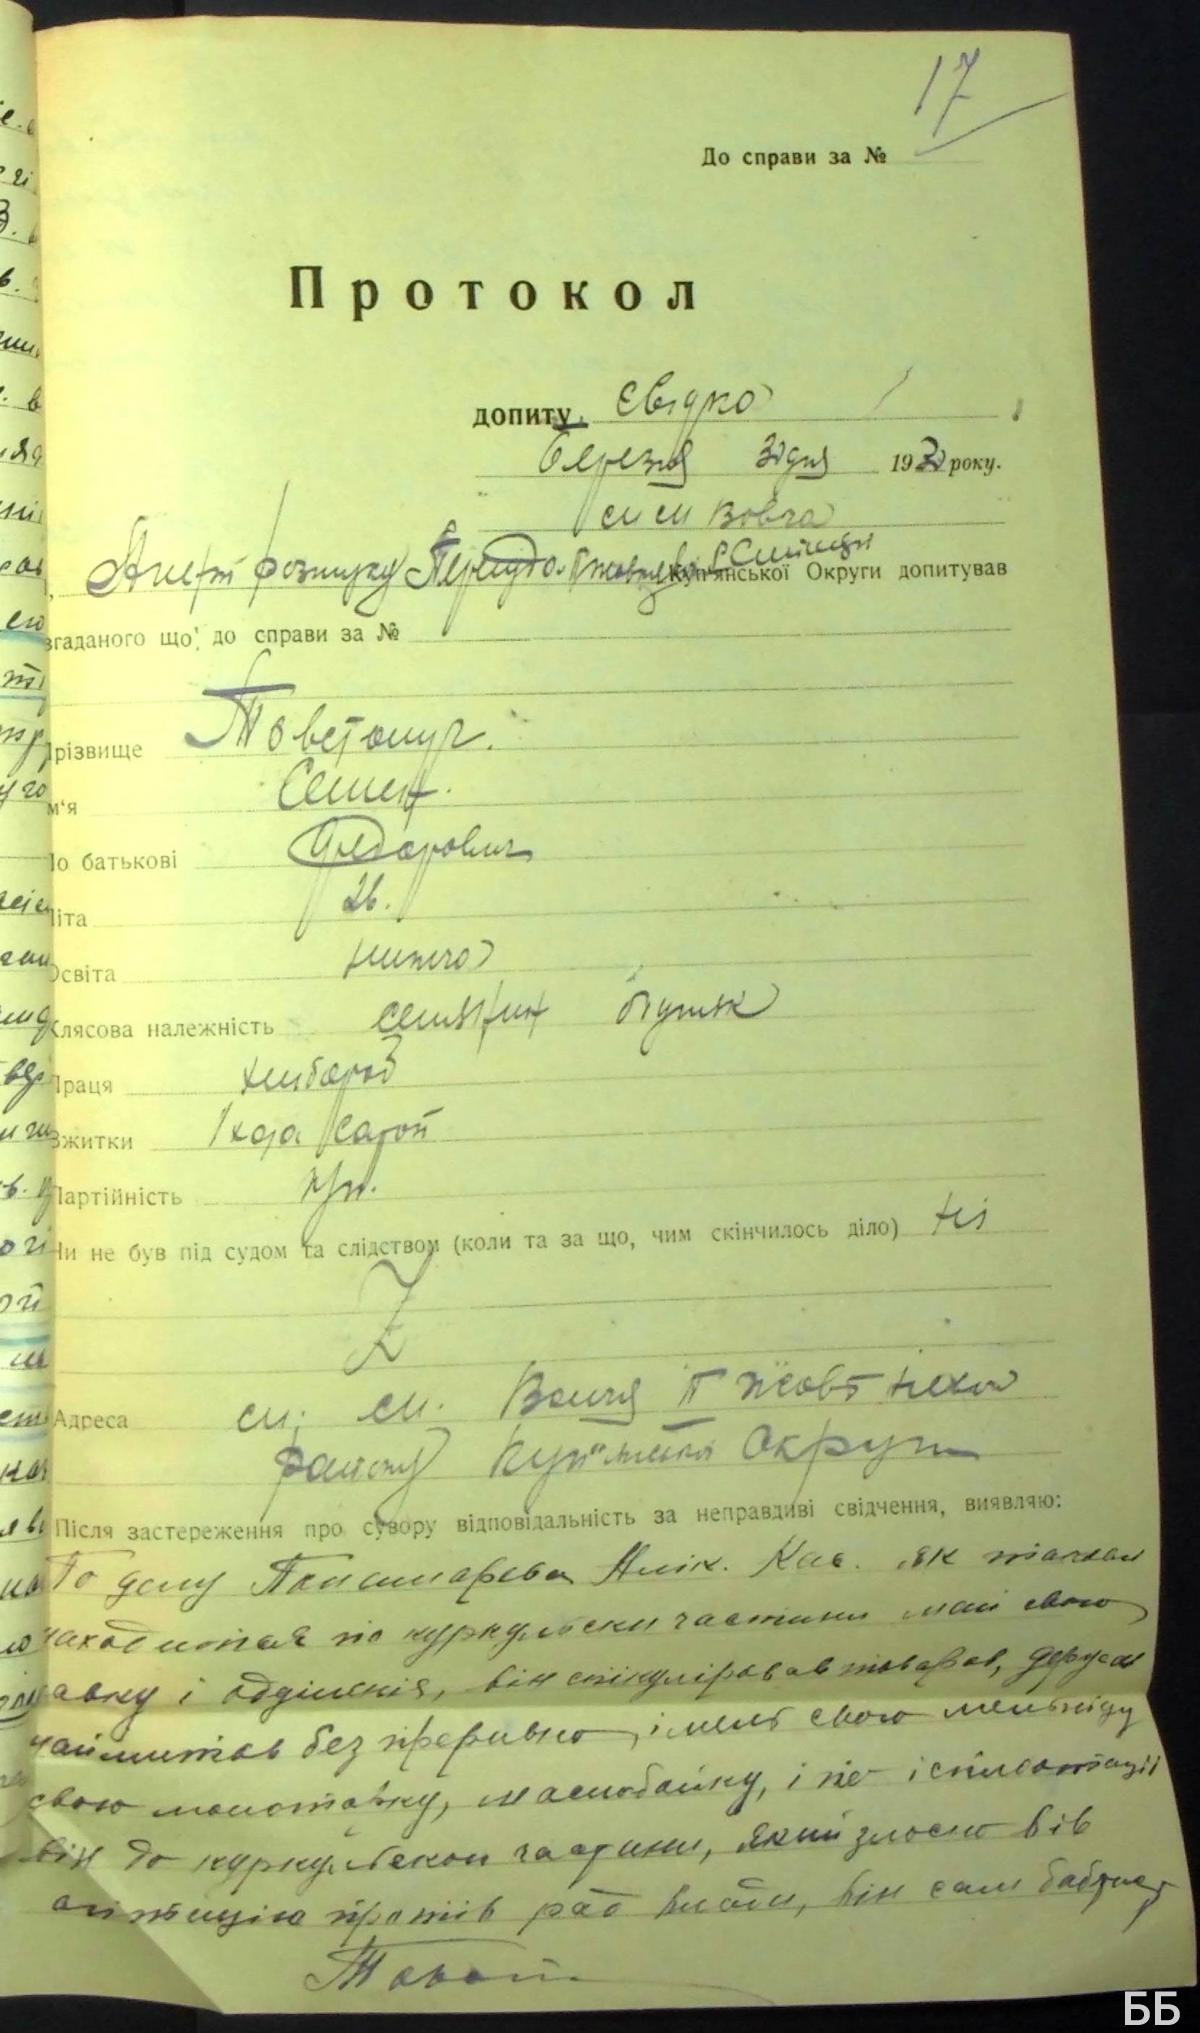 17
До справи за №
Протокол
допиту Свідка
березня 30 дня 1930 року.
Агент розшуку Куп'янської Округи допитував
згаданого що, до справи за №
різвище Товстокуч.
м'я Семен.
о батькові Федорович
іта 26.
світа нижча
Клясова належність селянин бідняк
Праця хлібороб
Зжитки 1 хата сарай
Партійність
и не був під судом та слідством (коли та за що, чим скінчилось діло) ні
Z
Адреса
району Куп'янської Округи
Після застереження про сувору відповідальність за неправдиві свідчення, виявляю:
По делу Панамарева Амік. Кас. як
находится по куркульски частини мав свою
авку і він спікуліровав товаров, держав
наймитов без преривно, імел свою мельницу
свою молотарку, маслобойку, і по
він до куркульской частини, який злосно вів
агитацію протів рад влади, він сам